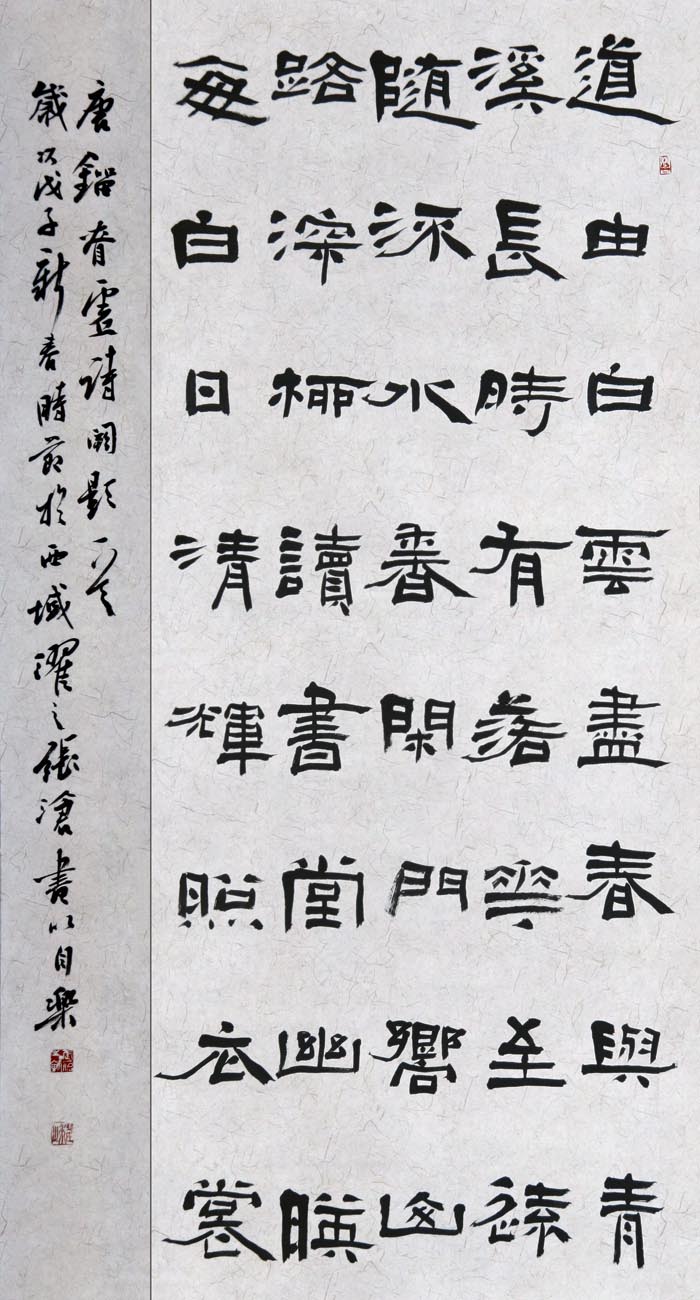 道由白雲盡春與青
溪長時有落華至遠
随流水香閑門嚮山
路深柳讀書堂幽暎
每白日清輝照衣裳
唐鎦眘虛詩闕題一首
歲次戊子新春時節於西域濯之張滄書以自樂